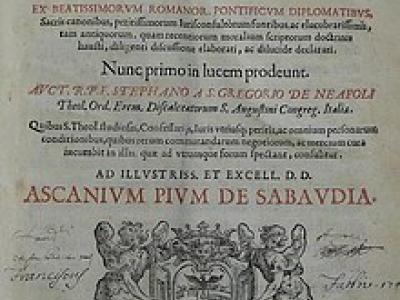 EX BEATISSIMORVM ROMANOR. PONTIFICVM DIPLOMATIBVS,
Sacris canonibus, peritissimorum Iurisconsultorum fontibus, ac elucubratissimis,
tam antiquorum, quam recentiorum moralium scriptorum doctrinis
hausti, diligenti discussione elaborati, ac dilucide declarati.
Nunc primo in lucem prodeunt.
AVCT. R.P.F. STEPHANO A S. GREGORIO DE NEAPOLI
Theol. Ord. Erem. Discalceatorum S. Augustini Congreg. Italiæ.
Quibus S. Theol. studiosis, Confessarijs, Iuris vtriusq; peritis, ac omnium personarum
conditionibus, quibus rerum commutandarum negotiorum, ac mercium cura
incumbit in illis, quæ ad vtrumque forum spectant, consulitur.
AD ILLVSTRISS. ET EXCELL. D. D.
ASCANIVM PIVM DE SABAVDIA.
Franciscus